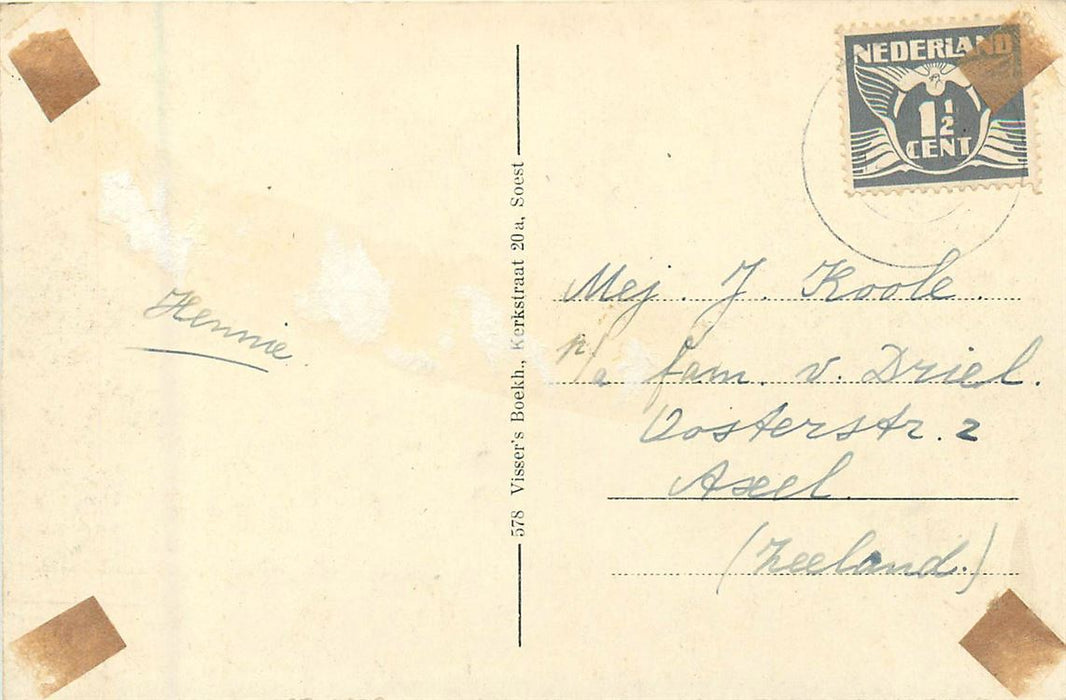 NEDERLAND
1½
CENT
Hennie
578 Visser's Boekh., Kerkstraat 20a, Soest
Mej. J. Koole.
p/a fam. v. Driel.
Oosterstr. 2
Axel.
(Zeeland.)